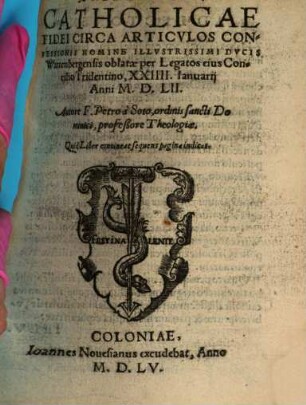 CATHOLICAE
FIDEI CIRCA ARTICVLOS CON-
FESSIONIS NOMINE ILLVSTRISSIMI DVCIS
Wirtenbergensis oblatæ per Legatos eius Con-
cilio Tridentino, XXIIII. Ianuarij
Anni M. D. LII.
Autore F. Petro à Soto, ordinis sancti Do
minici, professore Theologiæ.
Quid Liber contineat sequens pagina indicat.
FESTINA LENTE
COLONIAE,
Ioannes Nouesianus excudebat, Anno
M. D. LV.